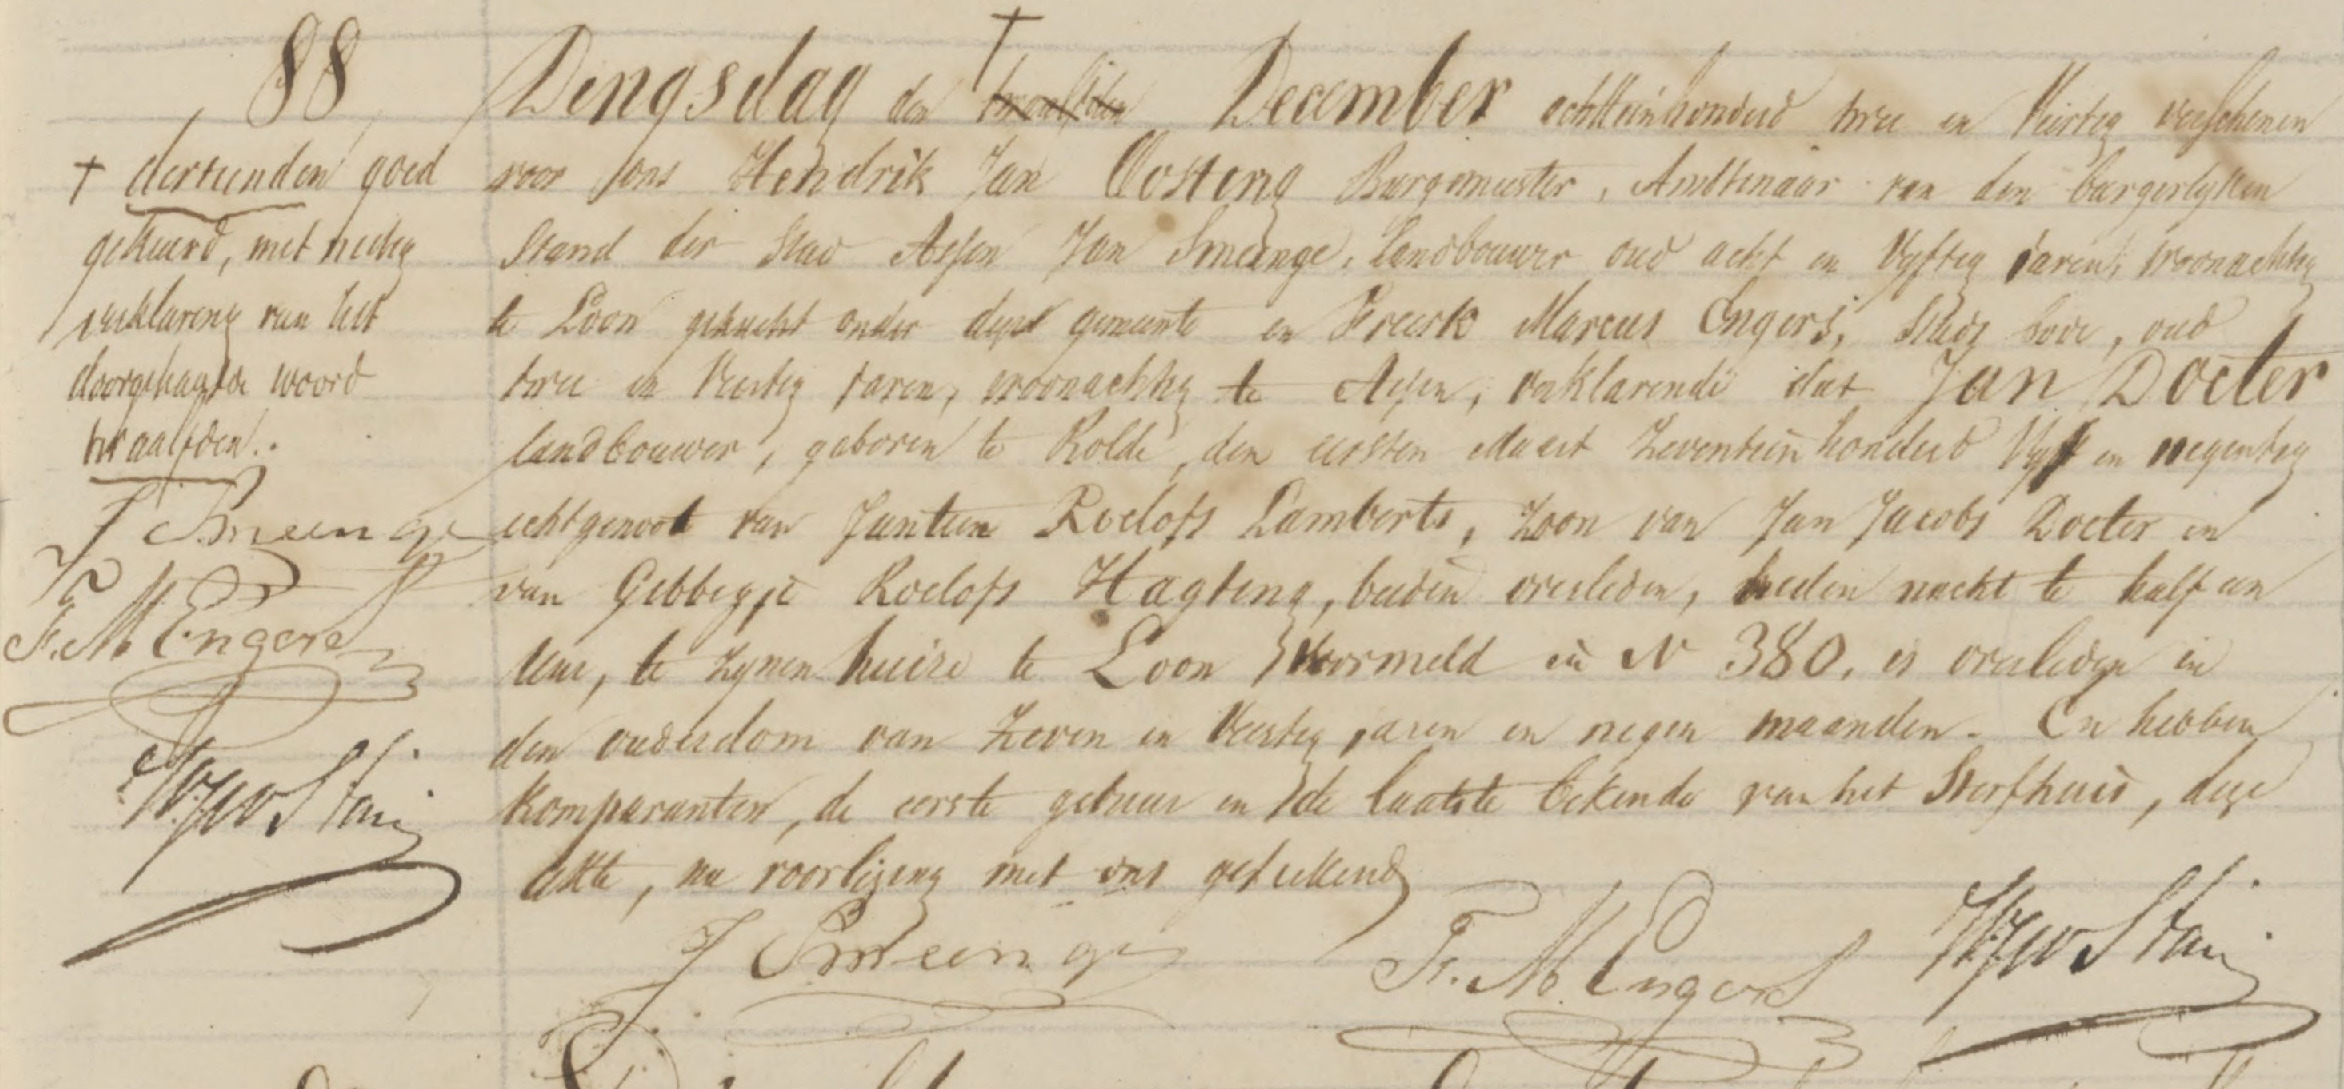 88
† dertienden goed
gekeurd, met nietig
verklaring van het
doorgehaalde woord
twaalfden.
J Smeenge
Fr. M Engers
HJ Oosting
Dingsdag den † twaalfden December achttienhonderd twee en Veertig verschenen
voor ons Hendrik Jan Oosting Burgemeester, Ambtenaar van den burgerlyken
Stand der Stad Assen Jan Smeenge, Landbouwer oud acht en Vyftig Jaren, woonachtig
te Loon gehucht onder deze gemeente en Freerk Marcus Engers, Stads bode, oud
twee en Veertig Jaren, woonachtig te Assen, verklarende dat Jan Docter
landbouwer, geboren te Rolde, den eersten Maart Zeventienhonderd Vyf en negentig
echtgenoot van Jantien Roelofs Lamberts, Zoon van Jan Jacobs Docter en
van Gebbegje Roelofs Hagting, beiden overleden, heden nacht te half een
Uur, te Zynen huize te Loon voormeld in N 380, is overleden in
den ouderdom van Zeven en Veertig jaren en negen maanden. En hebben
komparanten, de eerste gebuur en de laatste bekende van het Sterfhuis, deze
akte, na voorlezing met ons geteekend
J Smeenge
Fr. M Engers
HJ Oosting